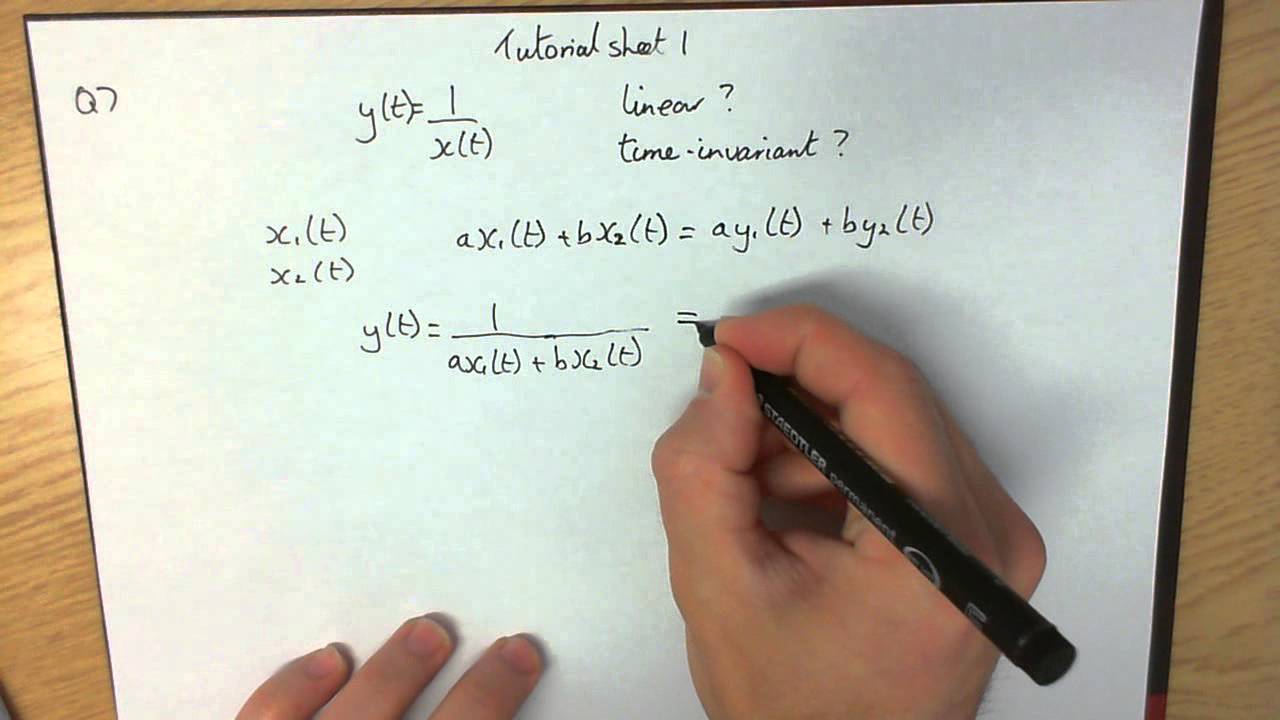 Tutorial sheet 1
Q7
y(t)= 1/x(t) linear ?
time-invariant ?
x₁(t) ax₁(t) + bx₂(t) = ay₁(t) + by₂(t)
x₂(t)
y(t) = 1/(ax₁(t) + bx₂(t)) =
STAEDTLER permanent